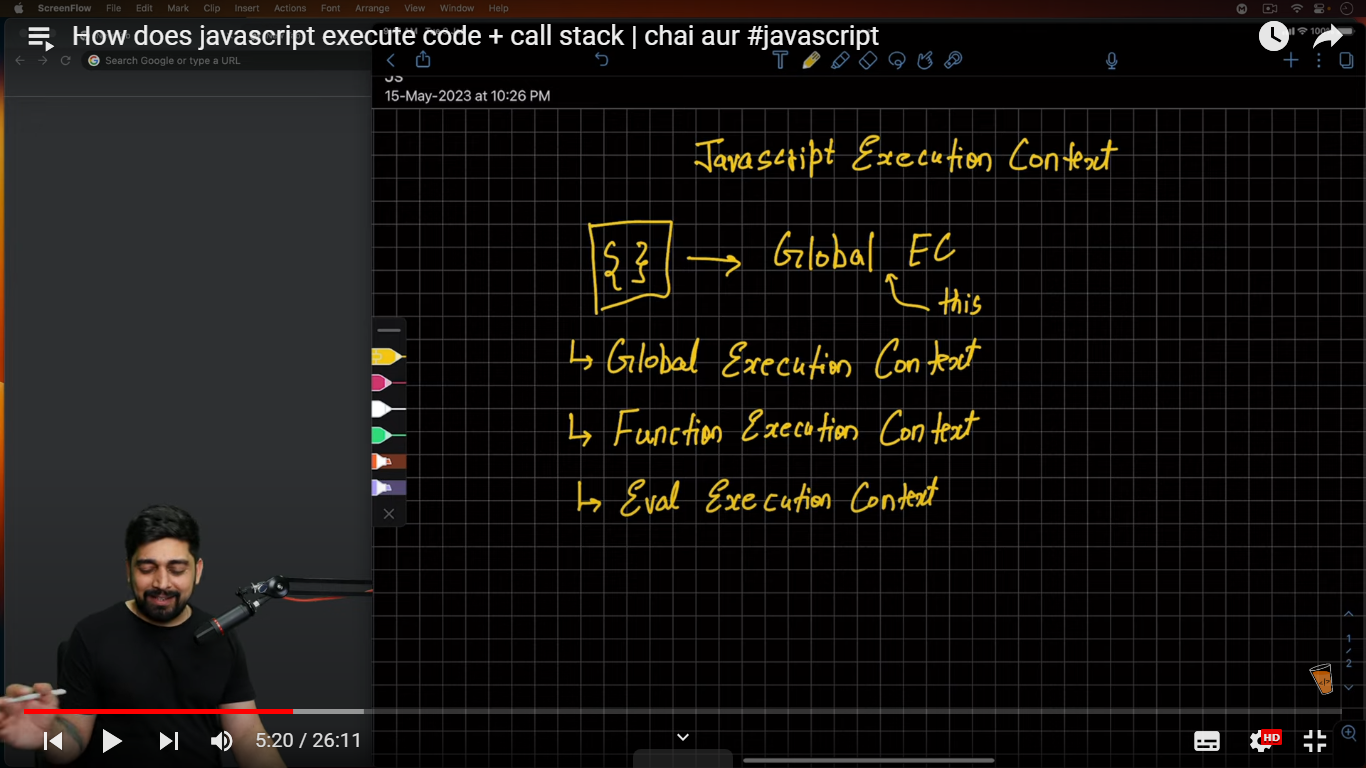 ScreenFlow File Edit Mark Clip Insert Actions Font Arrange View Window Help
How does javascript execute code + call stack | chai aur #javascript
Search Google or type a URL
JS
15-May-2023 at 10:26 PM
Javascript Execution Context
{ } → Global EC
this
↳ Global Execution Context
↳ Function Execution Context
↳ Eval Execution Context
1
/
2
5:20 / 26:11
HD